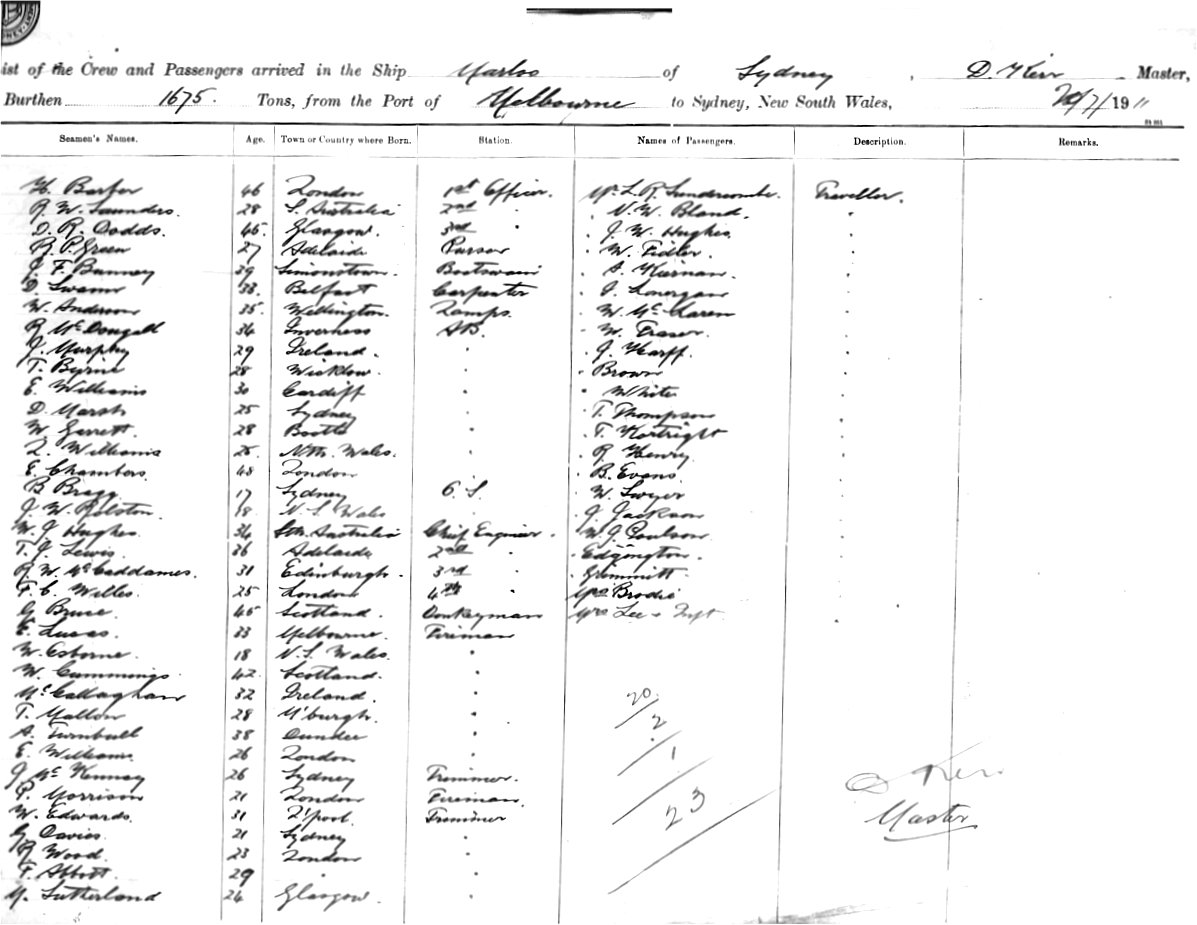 ist of the Crew and Passengers arrived in the Ship Marloo of Sydney, D. Kerr Master,
Burthen 1675. Tons, from the Port of Melbourne to Sydney, New South Wales, /7/1911
Seamen's Names. Age. Town or Country where Born. Station. Names of Passengers. Description. Remarks.
H. Barber 46 London 1st Officer. Mr. L. R. Traveller.
R. W. Saunders. 28 S. Australia 2nd " N. W. Bland. "
D. R. Dodds. 45. Glasgow. 3rd " J. W. Hughes. "
R. P. Green 27 Adelaide Purser W. Fidler. "
J. F. Bunney 39 Simonstown. Boatswain A. Kiernan. "
D. Swann 38. Belfast Carpenter J. Lonergan "
W. Anderson 35. Wellington. Lamps. W. McLaren "
R. McDougall 34 Inverness AB. W. Fraser. "
J. Murphy 29 Ireland. " J. Harff. "
T. Byrne 28 Wicklow. " Brown "
E. Williams 30 Cardiff " White "
D. Marsh 25 Sydney " T. Thompson "
W. Garrett. 28 Bootle " T. Kortright "
L. Williams 25. Nth. Wales. " R. Henry. "
E. Chambers. 48 London " B. Evans. "
B. Bragg 17 Sydney O. S. W. Swyer "
J. W. Rolston. 18 N. S. Wales " J. Jackson "
W. J. Hughes. 34 Sth. Australia Chief Engineer. W. J. Poulson. "
T. J. Lewis. 36 Adelaide 2nd " Edgington. "
R. W. McCaddames. 31 Edinburgh. 3rd " Grimmitt. "
F. C. Willis. 25 London 4th " Mrs Brodie "
G. Bruce. 45 Scotland. Donkeyman Mrs Lee & Inft. "
E. Lucas. 33 Melbourne. Fireman "
W. Osborne. 18 N. S. Wales. "
W. Cummings. 42. Scotland. "
McCallaghan 32 Ireland. " 20
T. Mallon 28 M'burgh. " 2
A. Turnbull 38 Dundee "
E. Williams. 26 London " 1
J. McKennay 26 Sydney Trimmer.
P. Morrison 21 London Fireman. 23 D Kerr
W. Edwards. 31 L'pool. Trimmer Master
G. Davies. 21 Sydney "
R. Wood. 23 London "
F. Abbott. 29 " "
M. Sutherland 24 Glasgow. "